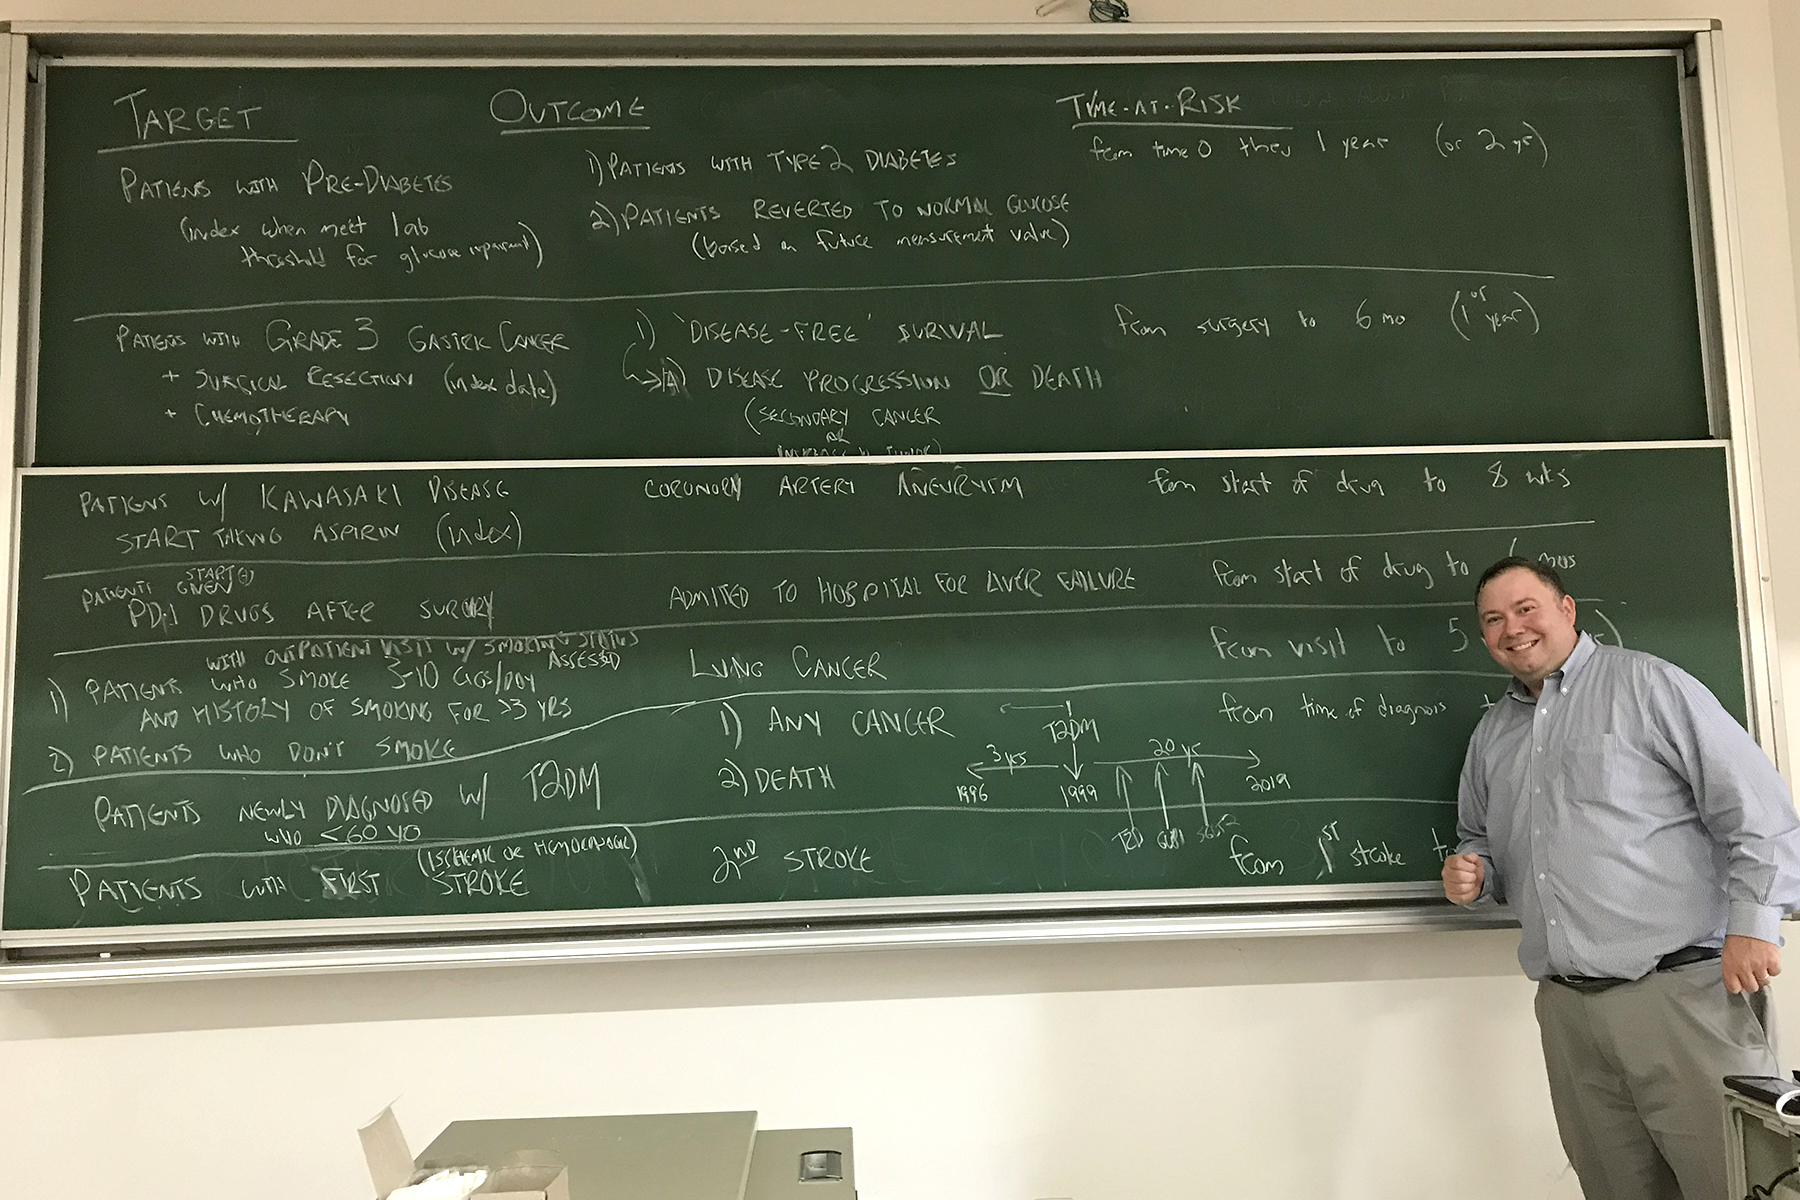 TARGET
OUTCOME
TIME-AT-RISK
PATIENTS WITH PRE-DIABETES
(index when meet lab
threshold for glucose
1) PATIENTS WITH TYPE 2 DIABETES
2) PATIENTS REVERTED TO NORMAL GLUCOSE
(based on future measurement value)
from time 0 thru 1 year (or 2 yr)
PATIENTS WITH GRADE 3 GASTRIC CANCER
+ SURGICAL RESECTION (index date)
+ CHEMOTHERAPY
1) 'DISEASE-FREE' SURIVAL
→ A) DISEASE PROGRESSION OR DEATH
(SECONDARY CANCER
OR
from surgery to 6 mo (or 1 year)
PATIENS W/ KAWASAKI DISEASE
START TAKING ASPIRIN (index)
CORONORY ARTERY ANEURYSM
from start of drug to 8 wks
PATIENTS GIVEN START(ED)
PD-1 DRUGS AFTER SURGRY
ADMITTED TO HOSPITAL FOR LIVER FAILURE
from start of drug to 6 mos
WITH OUTPATIENT VISIT W/ SMOKING STATUS
ASSESSED
1) PATIENTS WHO SMOKE 3-10 CIGS/DAY
AND HISTORY OF SMOKING FOR >3 YRS
2) PATIENTS WHO DON'T SMOKE
LUNG CANCER
from visit to 5
PATIENTS NEWLY DIAGNOSED W/ T2DM
WHO <60 YO
1) ANY CANCER
2) DEATH
T2DM
3 yrs
20 yr
1996
1999
2019
TZD
GLP1
SGLT2
from time of diagnosis
PATIENTS WITH FIRST STROKE
(ISCHEMIC OR HEMORRHAGIC)
2ND STROKE
from 1ST stroke to